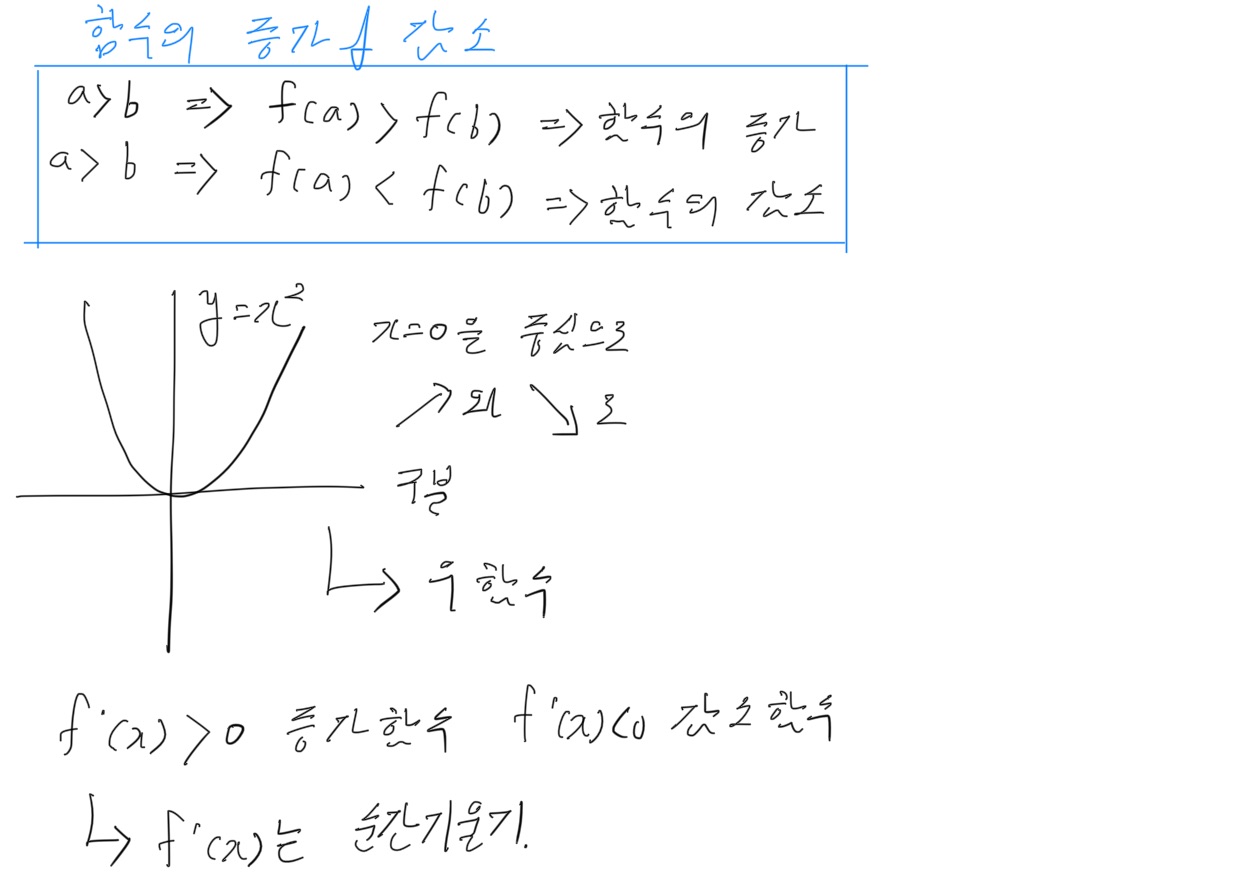 함수의 증가 & 감소
a>b => f(a) > f(b) => 함수의 증가
a> b => f(a) < f(b) => 함수의 감소
y=x²
x=0을 중심으로
↗와 ↘로
구분
↳ 우함수
f'(x)>0 증가함수 f'(x)<0 감소함수
↳ f'(x)는 순간기울기.